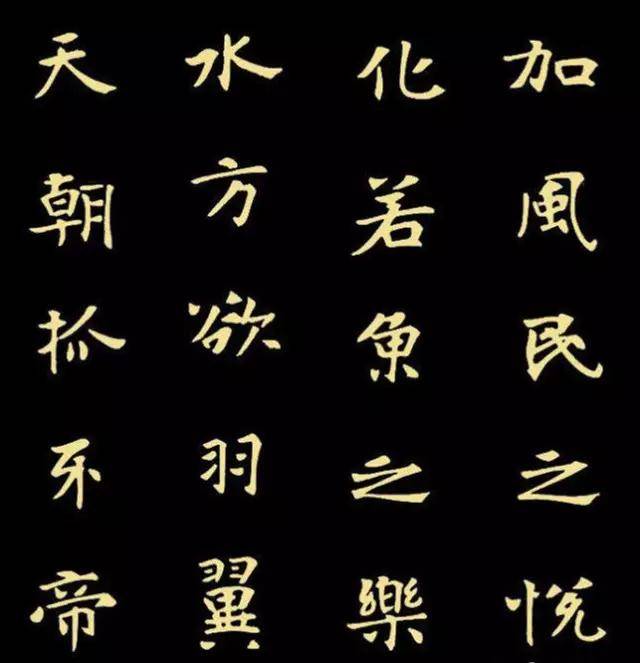 加風民之悅
化若魚之樂
水方欲羽翼
天朝抓帝